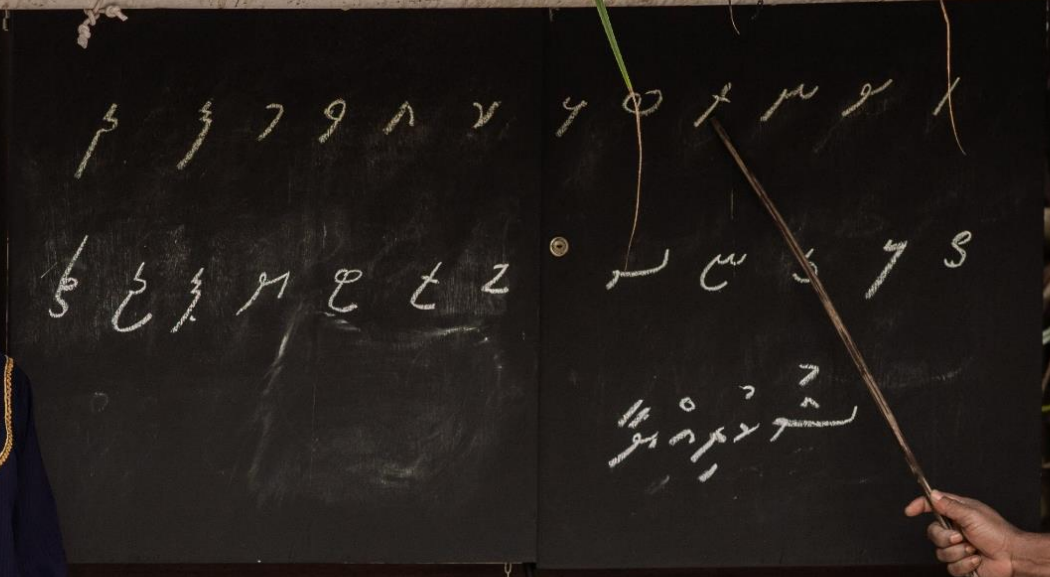 ހ ށ ނ ރ ބ ޅ ކ އ ވ މ ފ ދ
ތ ލ ގ ޏ ސ ޑ ޒ ޓ ޔ ޕ ޖ ޗ